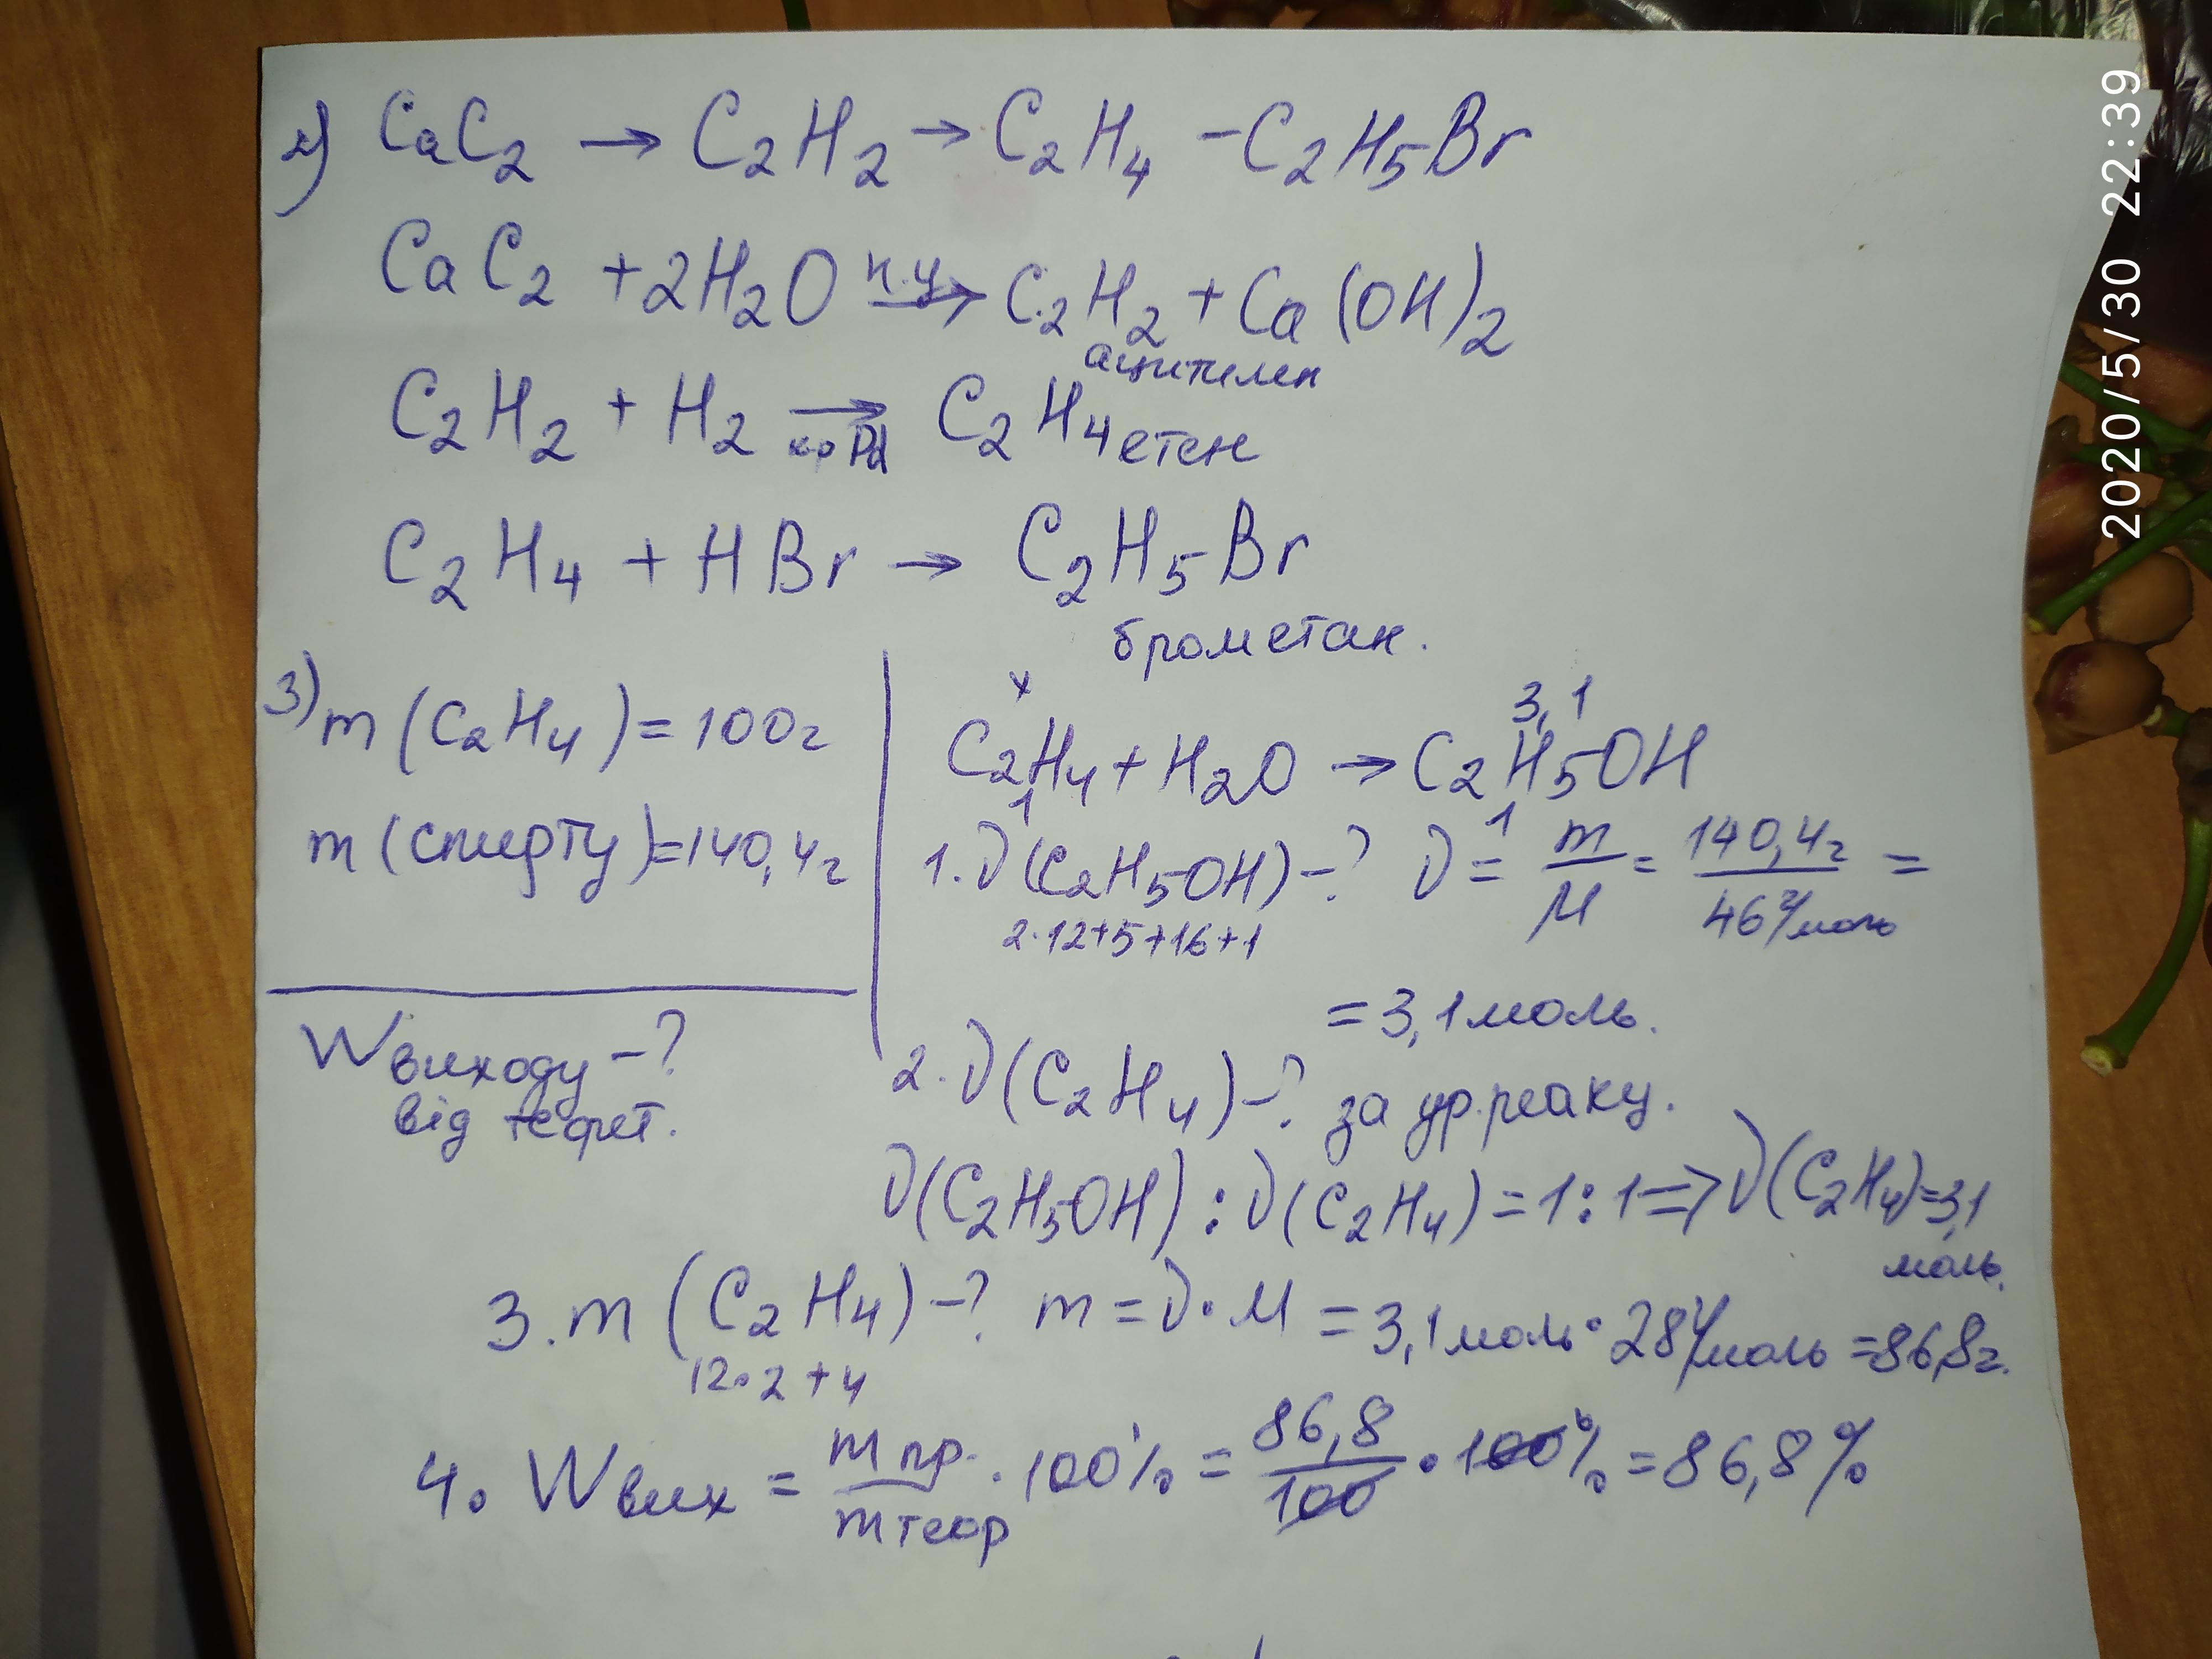 2) CaC₂ → C₂H₂ → C₂H₄ - C₂H₅Br
CaC₂ + 2H₂O н.у → C₂H₂ + Ca(OH)₂
ацителен
C₂H₂ + H₂ → C₂H₄ етен
Pd
C₂H₄ + HBr → C₂H₅Br
брометан.
3) m(C₂H₄) = 100г
m(спирту) = 140,4г
Wвиходу -?
від теорет.
x 3,1
C₂H₄ + H₂O → C₂H₅OH
1 1
1. ν(C₂H₅OH) -? ν = m/M = 140,4г/46г/моль =
2·12+5+16+1
= 3,1 моль.
2. ν(C₂H₄) -? за ур. реакц.
ν(C₂H₅OH) : ν(C₂H₄) = 1:1 => ν(C₂H₄) = 3,1
моль.
3. m(C₂H₄) -? m = ν·M = 3,1 моль · 28г/моль = 86,8г.
12·2+4
4. Wвих = m пр./m теор · 100% = 86,8/100 · 100% = 86,8%
2020/5/30 22:39